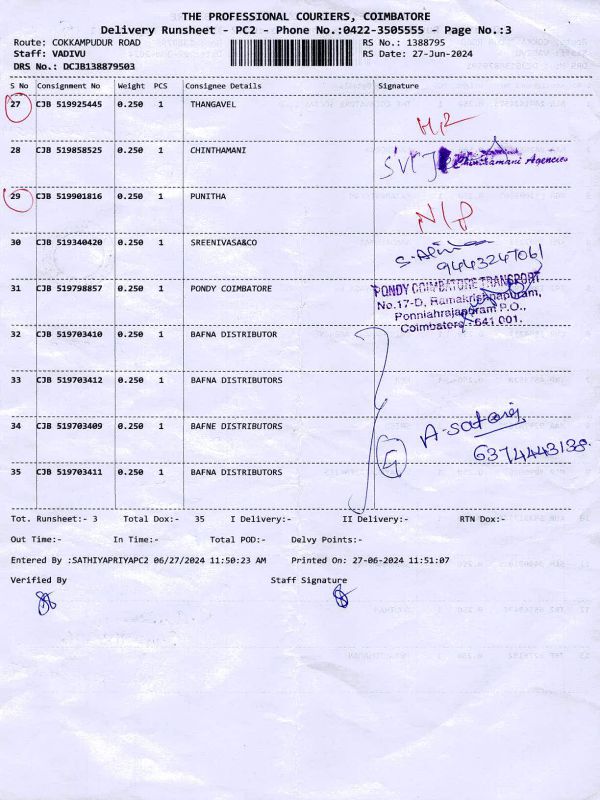 THE PROFESSIONAL COURIERS, COIMBATORE
Delivery Runsheet - PC2 - Phone No.:0422-3505555 - Page No.:3
Route: COKKAMPUDUR ROAD RS No.: 1388795
Staff: VADIVU RS Date: 27-Jun-2024
DRS No.: DCJB138879503
S No Consignment No Weight PCS Consignee Details Signature
27 CJB 519925445 0.250 1 THANGAVEL
28 CJB 519858525 0.250 1 CHINTHAMANI
Chinthamani Agencies
29 CJB 519901816 0.250 1 PUNITHA
N/P
30 CJB 519340420 0.250 1 SREENIVASA&CO
9443247061
31 CJB 519798857 0.250 1 PONDY COIMBATORE
PONDY COIMBATORE TRANSPORT
No.17-D, Ramakrishnapuram,
Ponniahrajapuram P.O.,
Coimbatore - 641 001.
32 CJB 519703410 0.250 1 BAFNA DISTRIBUTOR
33 CJB 519703412 0.250 1 BAFNA DISTRIBUTORS
34 CJB 519703409 0.250 1 BAFNE DISTRIBUTORS
6374443138
35 CJB 519703411 0.250 1 BAFNA DISTRIBUTORS
Tot. Runsheet:- 3 Total Dox:- 35 I Delivery:- II Delivery:- RTN Dox:-
Out Time:- In Time:- Total POD:- Delvy Points:-
Entered By :SATHIYAPRIYAPC2 06/27/2024 11:50:23 AM Printed On: 27-06-2024 11:51:07
Verified By Staff Signature